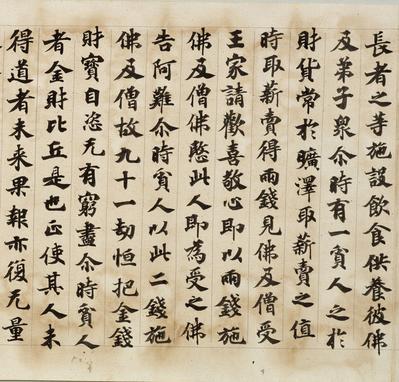 長者之等施設飲食供養彼佛
及弟子衆尒時有一貧人之於
財貨常於曠澤取薪賣之值
時取薪賣得兩錢見佛及僧受
王家請歡喜敬心即以兩錢施
佛及僧佛愍此人即為受之佛
告阿難尒時貧人以此二錢施
佛及僧故九十一劫恒把金錢
財寶自恣无有窮盡尒時貧人
者金財比丘是也正使其人未
得道者未来果報亦復无量